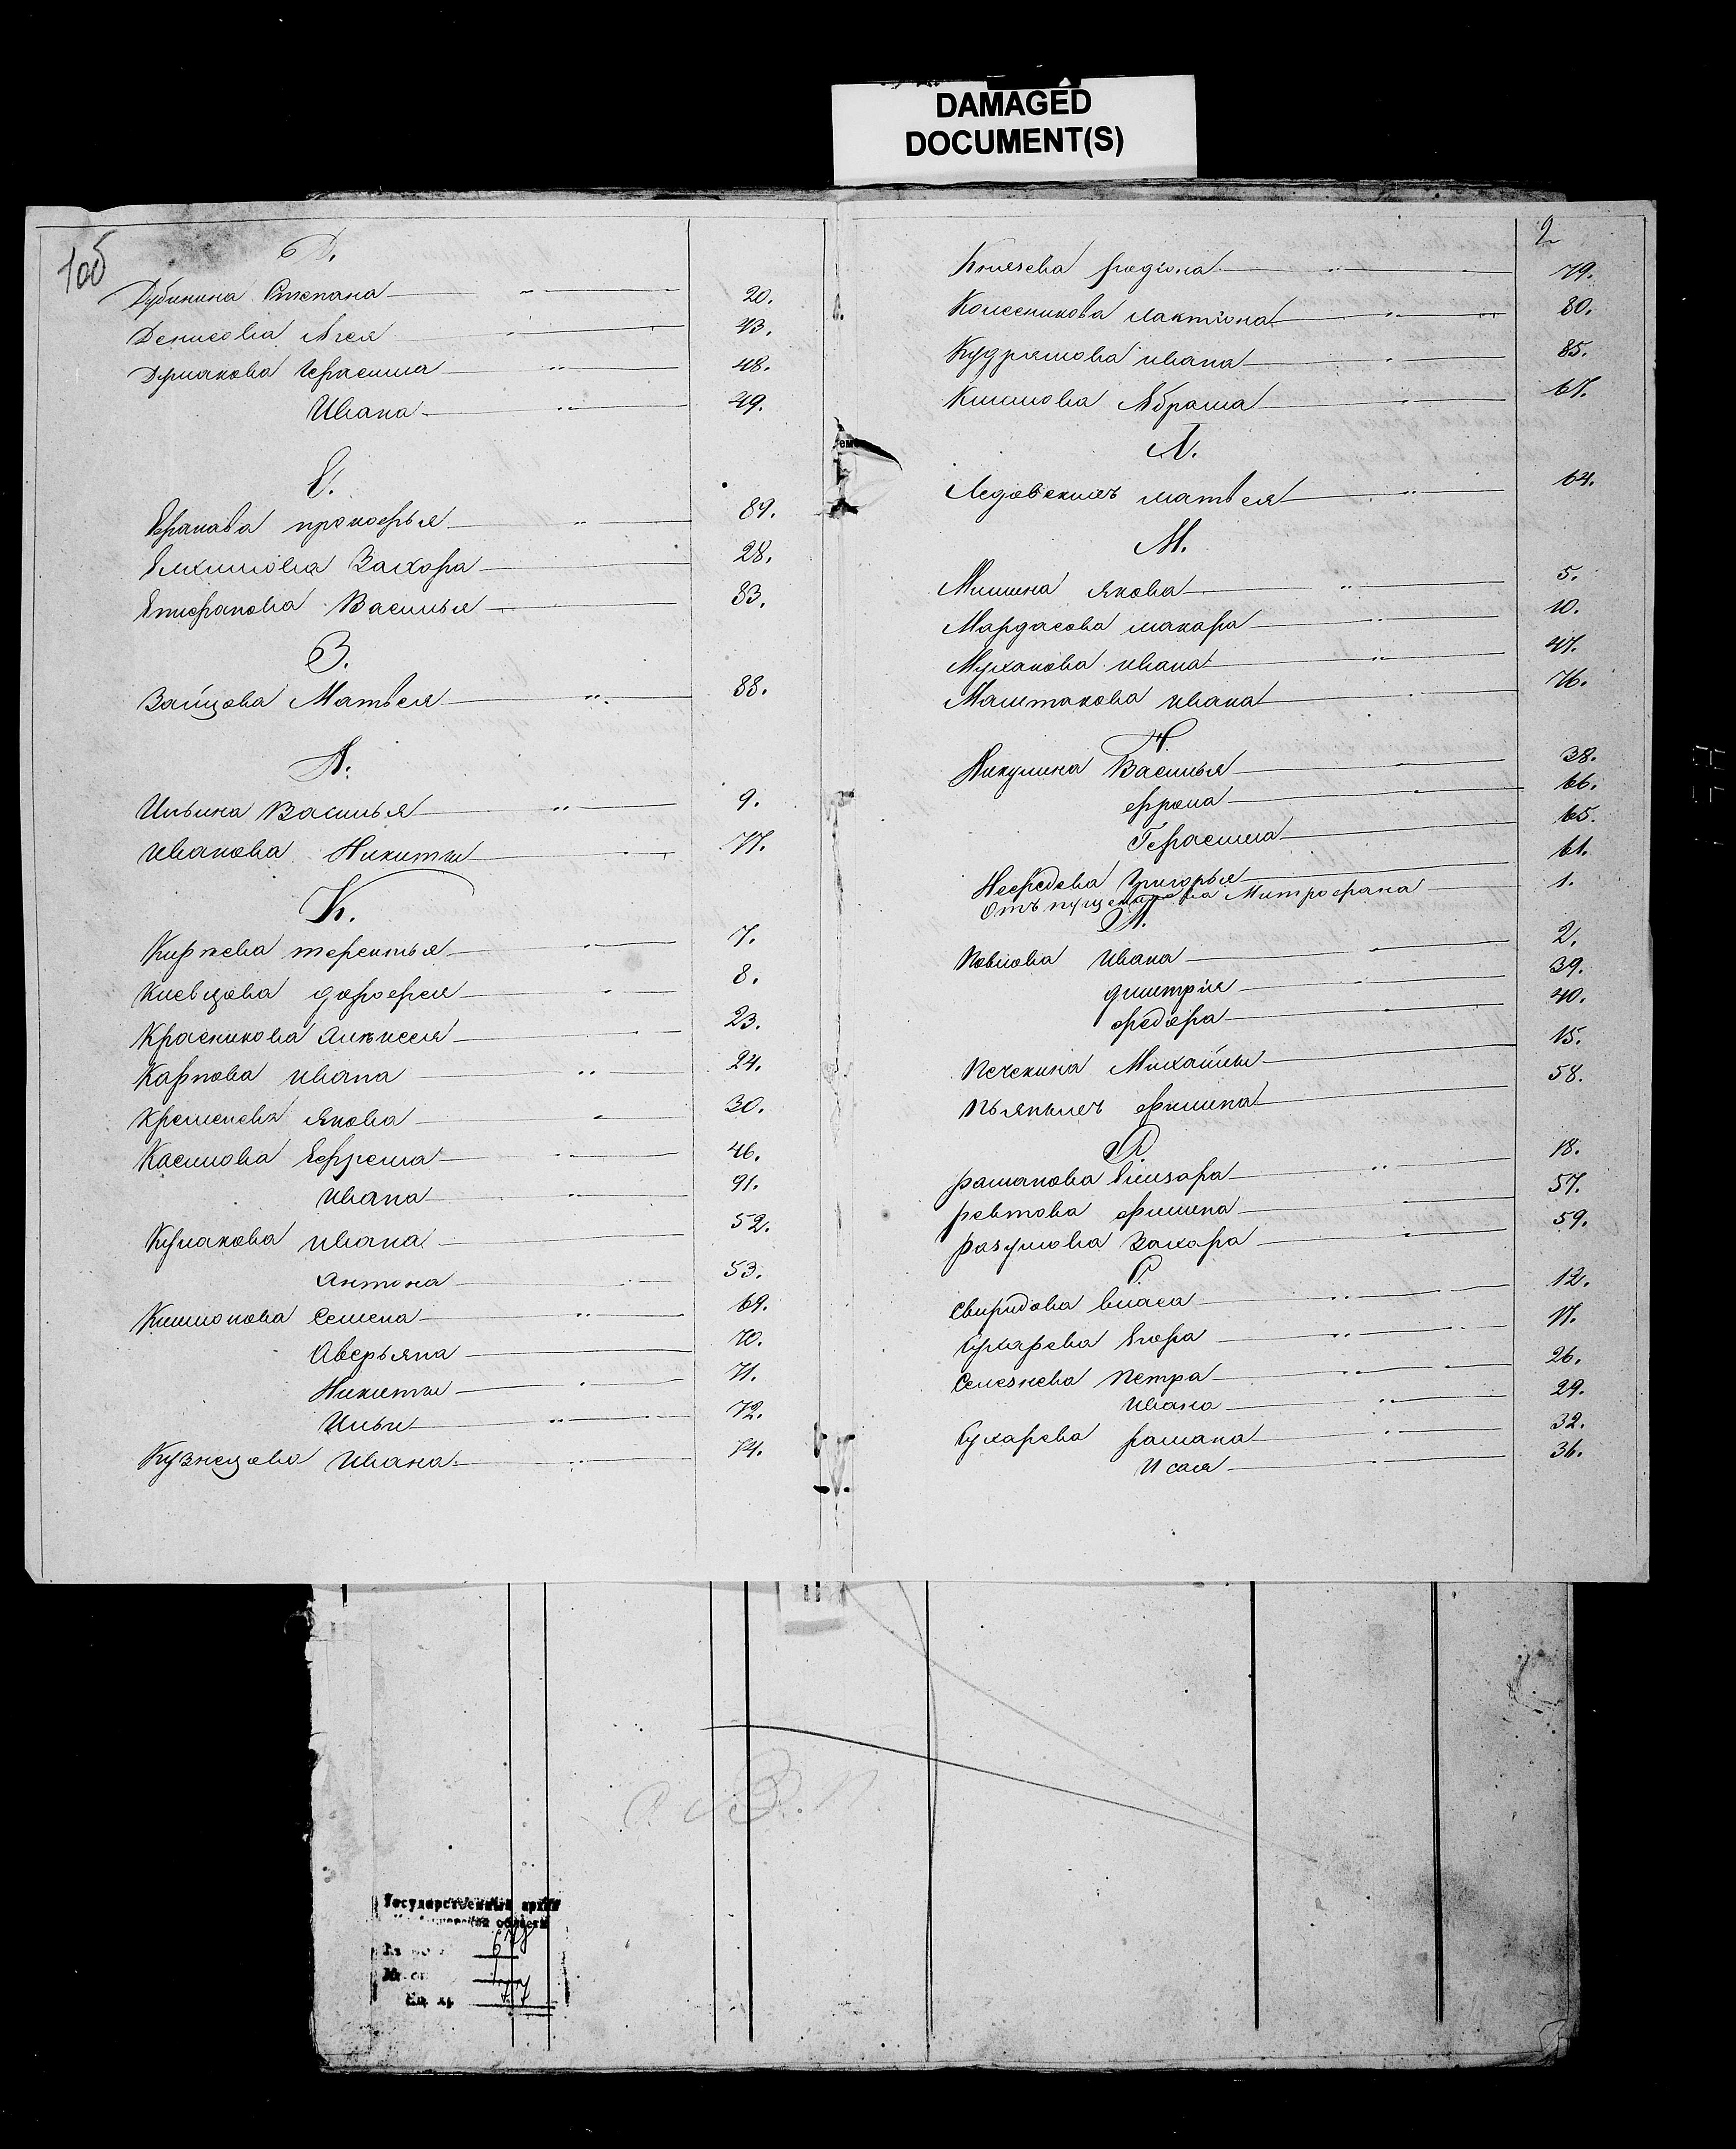 DAMAGED
DOCUMENT(S)
1об
Д.
Дубинина Степана 20.
Денисова Агея 43.
Думакова Герасима 48.
Ивана 49.
Е.
Ермакова прокофья 89.
Елхимова Захора 28.
Епифанова Василья 83.
З.
Зайцова Матвея 88.
И.
Ильина Василья 9.
Иванова Никиты 77.
К.
Киржева терентья 7.
Киевцова дорофея 8.
Красникова Алексея 23.
Карпова Ивана 24.
Кременева Якова 30.
Касимова Ефрема 46.
Ивана 91.
Кумакова Ивана 52.
Антона 53.
Климонова Семена 69.
Аверьяна 70.
Никиты 71.
Ильи 72.
Кузнецова Ивана 74.
2
Князева родиона 79.
Колесникова лактиона 80.
Кудряшова ивана 85.
Климова Абрама 67.
Л.
Ледовских матвея 64.
М.
Мишина Якова 5.
Мардасова макара 10.
Муханова ивана 47.
Маштакова ивана 76.
Н
Никулина Василья 38.
фрола 66.
Герасима 65.
Нефедова Григорья 61.
Отъ пущеннова Митрофана 1.
П.
Павлова Ивана 2.
дмитрия 39.
федора 40.
Печекина Михайлы 15.
Пьяныхъ филипа 58.
Р.
раманова Елизара 18.
ревтова филипа 57.
разумова Захара 59.
С.
Свиридова власа 12.
Сухарева Егора 17.
Селезнева Петра 26.
Ивана 29.
Сухарева рамана 32.
Исая 36.
Государственный архив
области